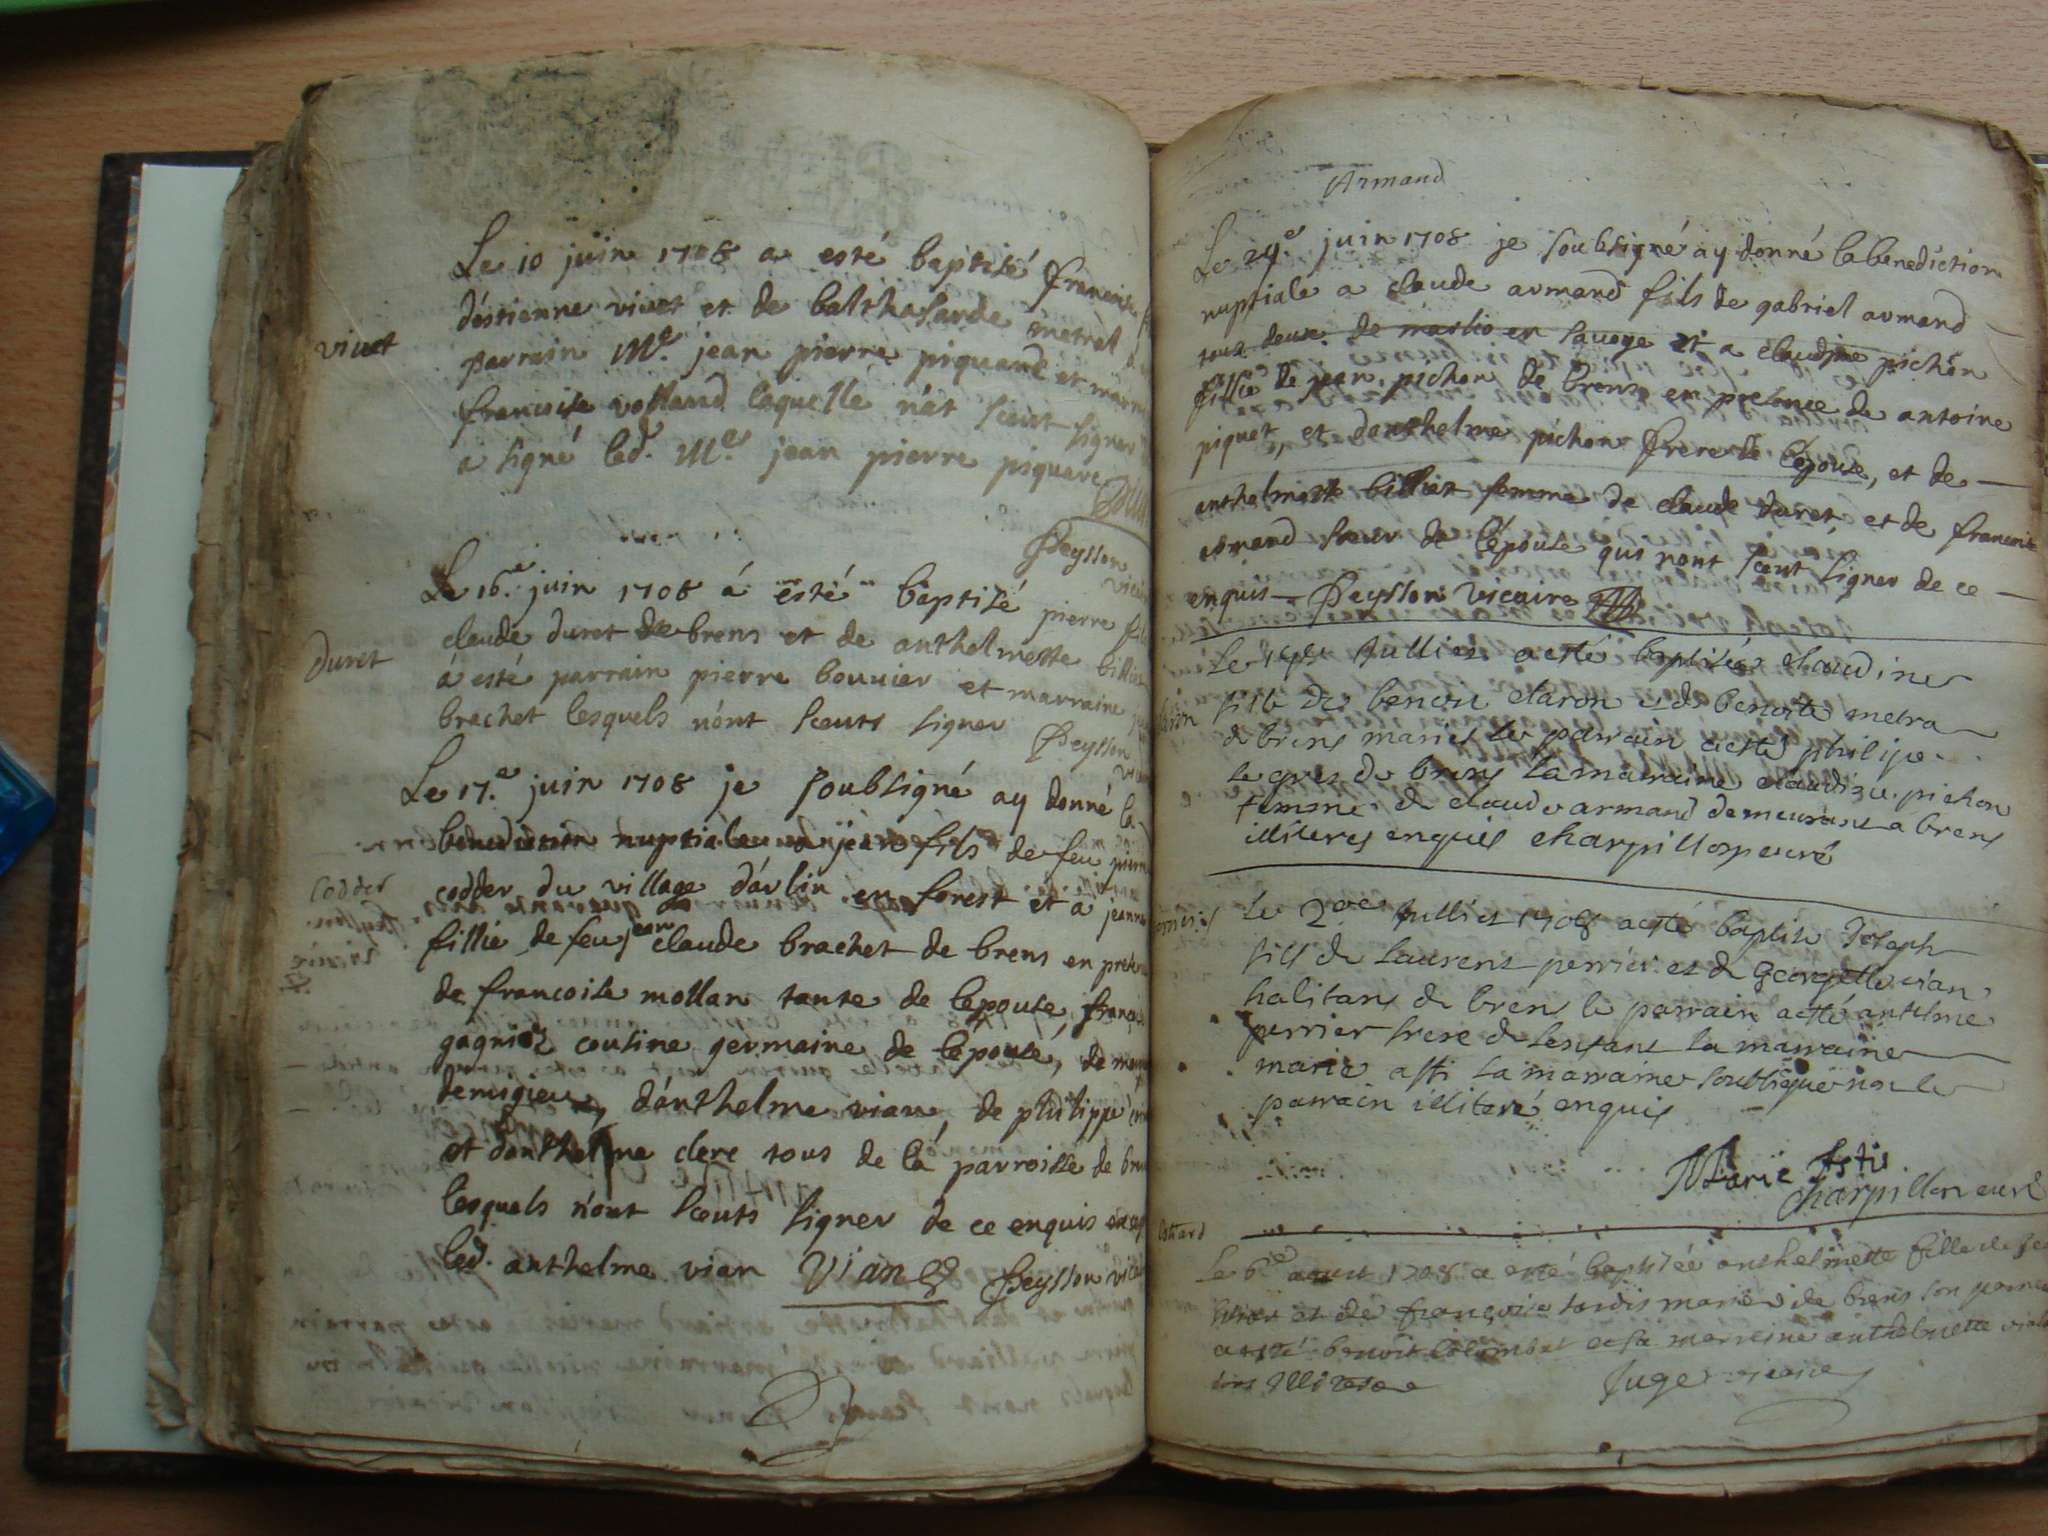 Le 10 juin 1708 a esté baptisé francoise
vivet
d'estienne vivet et de balthasarde metral
parrain Me. jean pierre piquand et marr
francoise volland laquelle n'at sceut signer
a signé led. Me. jean pierre piquare
Peysson
vicai
Le 16.e juin 1708 á esté baptisé pierre fil
duret
claude duret de brens et de anthelmette billiet
á esté parrain pierre bouuier et marraine
brachet lesquels n'ont sceuts signer
Peysson
Le 17.e juin 1708 je soubsigné ay donné la
benediction nuptiale a jean fils de feu pierre
codder
codder du village d'arlin en forest et a jeanne
fillie de feu jean claude brachet de brens en prese
de francoise mollan tante de l'epouse, franç
gagnioz cousine germaine de l'epouse, de
demigieu, d'anthelme vian, de philippe
et d'anthelme clerc tous de la parroisse de bre
lesquels n'ont sceuts signer de ce enquis
led. anthelme vian Vian Peysson vic
Armand
Le 24.e juin 1708 je soubsigné ay donné la benediction
nuptiale a claude armand fils de gabriel armand
tous deux de en savoye et a claudine pichon
fillie de jean pichon de brens en presence de antoine
piquet, et d'anthelme pichon frere de l'epouse, et de
anthelmette billiet femme de claude duret, et de francoise
armand soeur de l'epouse qui n'ont sceut signer de ce
enquis Peysson Vicaire
Le juillies a esté baptisée claudine
fille de benoit claron et de benoite metra
de brens maries le parrain a esté philipe
legres de brens la marraine claudine pichon
femme de claude armand demeurant a brens
illiteres enquis charpillon curé
Le 2 juillies 1708 a esté baptise Joseph
fils de laurens perrier et de Georgette vian
habitans de brens le parrain a esté antelme
perrier frere de lenfant la marraine
marie asti la marraine soubsignée non le
parrain illiteré enquis
Marie Astis
Charpillon curé
Cottard
Le 6.e aoust 1708 a esté baptisée anthelmette fille de
et de françoise tardis mariés de brens son parrain
a esté benoit colombet et sa marraine anthelmette
illiteres Juge vicaire